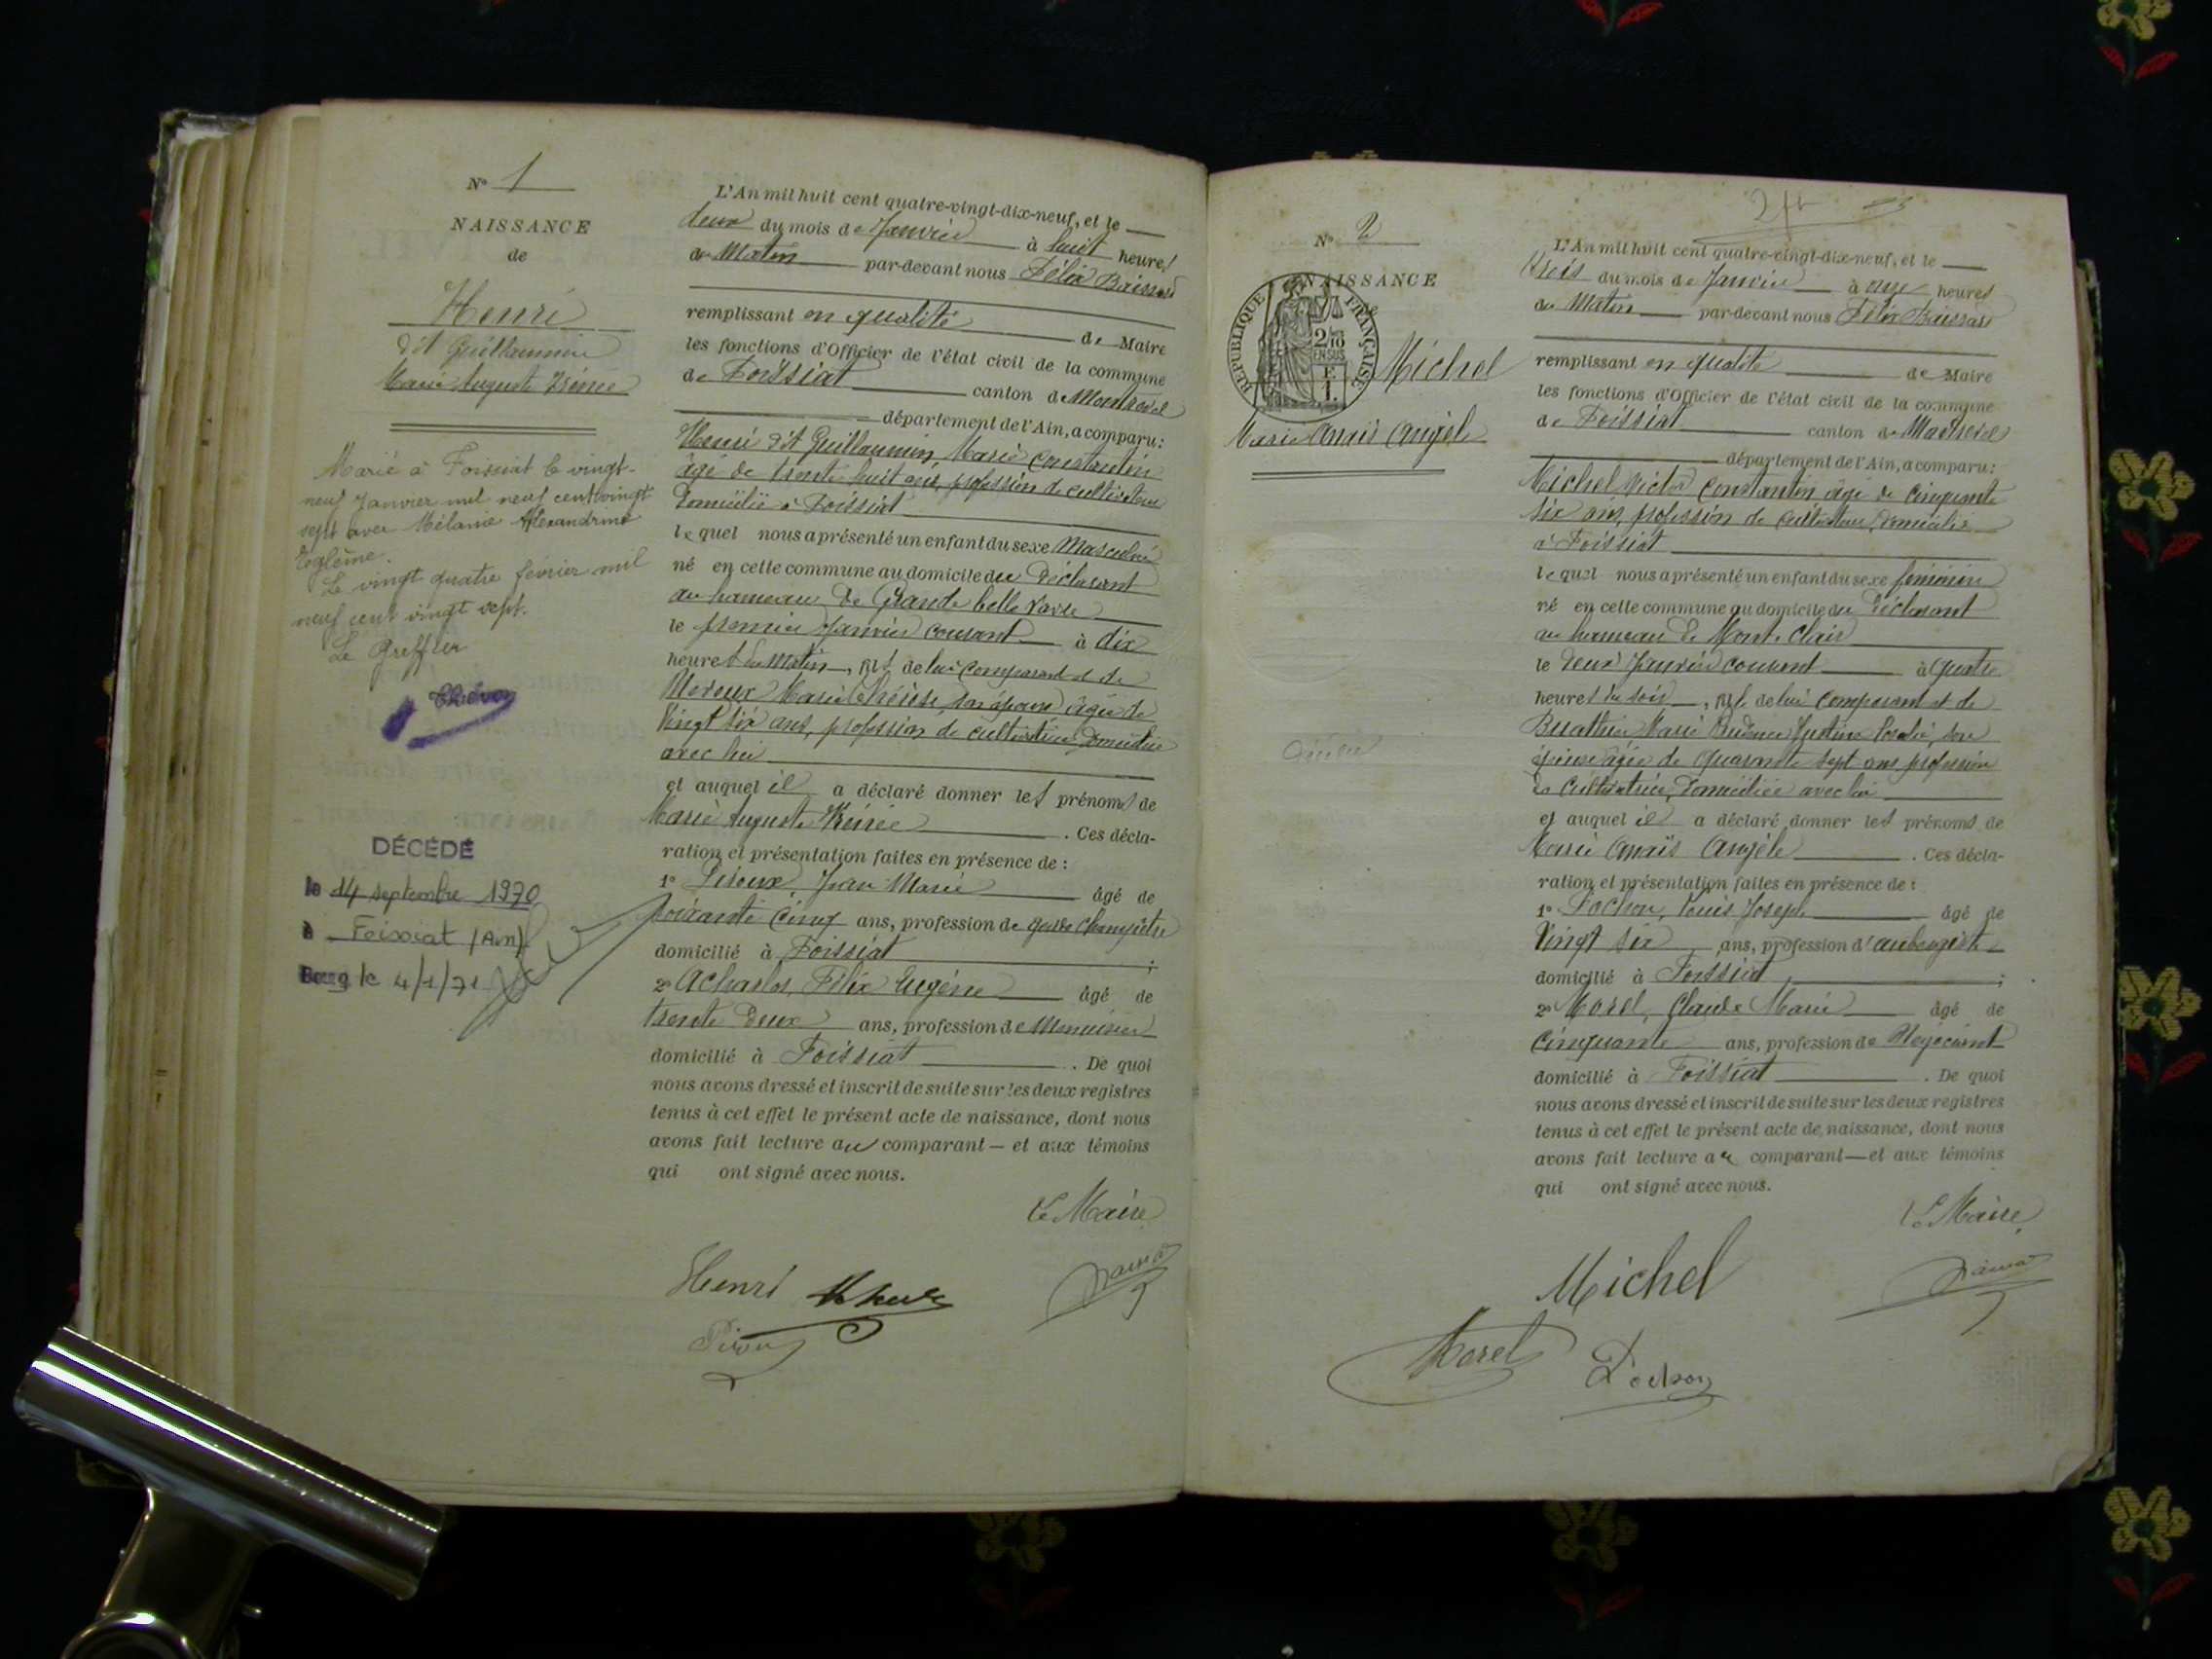 N° 1
NAISSANCE
de
Henri
dit Guillaumin
Marie Auguste Irénée
Marié à Foissiat le vingt-
neuf Janvier mil neuf cent vingt
sept avec Mélanie Alexandrine
Eglème.
Le vingt quatre février mil
neuf cent vingt sept.
Le Greffier
DÉCÉDÉ
le 14 septembre 1970
à Foissiat (Ain)
Bourg le 4/1/71
L'An mil huit cent quatre-vingt-dix-neuf, et le
deux du mois de Janvier à huit heures
du Matin par-devant nous Félix Baissard
remplissant en qualité de Maire
les fonctions d'Officier de l'état civil de la commune
de Foissiat canton de Montrevel
département de l'Ain, a comparu:
Henri dit Guillaumin Marie Constantin
âgé de trente huit ans, profession de cultivateur
domicilié à Foissiat
lequel nous a présenté un enfant du sexe Masculin
né en cette commune au domicile du Déclarant
au hameau de Grande belle vavre
le premier Janvier courant à dix
heures du Matin, fils de lui comparant et de
Moreux Marie Thérèse, son épouse âgée de
Vingt six ans, profession de cultivatrice domiciliée
avec lui
et auquel il a déclaré donner les prénoms de
Marie Auguste Irénée. Ces décla-
ration et présentation faites en présence de :
1° Jean Marie âgé de
soixante cinq ans, profession de garde champêtre
domicilié à Foissiat;
2° Félix Eugène âgé de
trente deux ans, profession de Menuisier
domicilié à Foissiat. De quoi
nous avons dressé et inscrit de suite sur les deux registres
tenus à cet effet le présent acte de naissance, dont nous
avons fait lecture au comparant — et aux témoins
qui ont signé avec nous.
Le Maire
Henri
N° 2
NAISSANCE
de
REPUBLIQUE FRANÇAISE
2/10
EN SUS
F.
1.
Michel
Marie Anaïs Angèle
L'An mil huit cent quatre-vingt-dix-neuf, et le
trois du mois de Janvier à onze heures
du Matin par-devant nous Félix Baissard
remplissant en qualité de Maire
les fonctions d'Officier de l'état civil de la commune
de Foissiat canton de Montrevel
département de l'Ain, a comparu:
Michel Victor Constantin âgé de Cinquante
six ans, profession de cultivateur, domicilié
à Foissiat
lequel nous a présenté un enfant du sexe féminin
né en cette commune au domicile du Déclarant
au hameau de Mont-Clair
le deux Janvier courant à quatre
heures du soir, fille de lui comparant et de
Buathier Marie Prudence Justine Rosalie, son
épouse âgée de quarante sept ans profession
de Cultivatrice, domiciliée avec lui
et auquel il a déclaré donner les prénoms de
Marie Anaïs Angèle. Ces décla-
ration et présentation faites en présence de :
1° Pochon, Louis Joseph âgé de
Vingt six ans, profession d'aubergiste
domicilié à Foissiat;
2° Morel, Claude Marie âgé de
Cinquante ans, profession de Négociant
domicilié à Foissiat. De quoi
nous avons dressé et inscrit de suite sur les deux registres
tenus à cet effet le présent acte de naissance, dont nous
avons fait lecture au comparant — et aux témoins
qui ont signé avec nous.
Le Maire
Michel
Morel Pochon